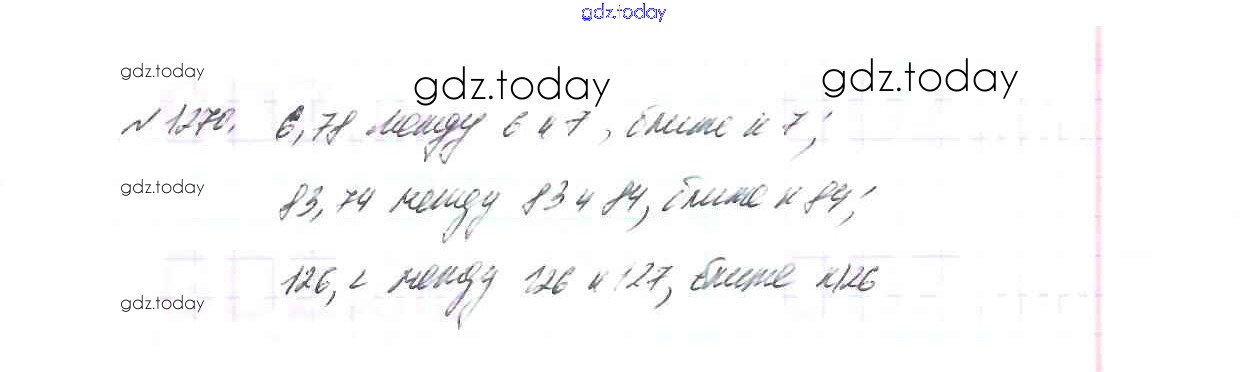 gdz.today
gdz.today
gdz.today gdz.today
№1270. 6,78 между 6 и 7, ближе к 7;
gdz.today
83,74 между 83 и 84, ближе к 84;
126,2 между 126 и 127, ближе к 126
gdz.today